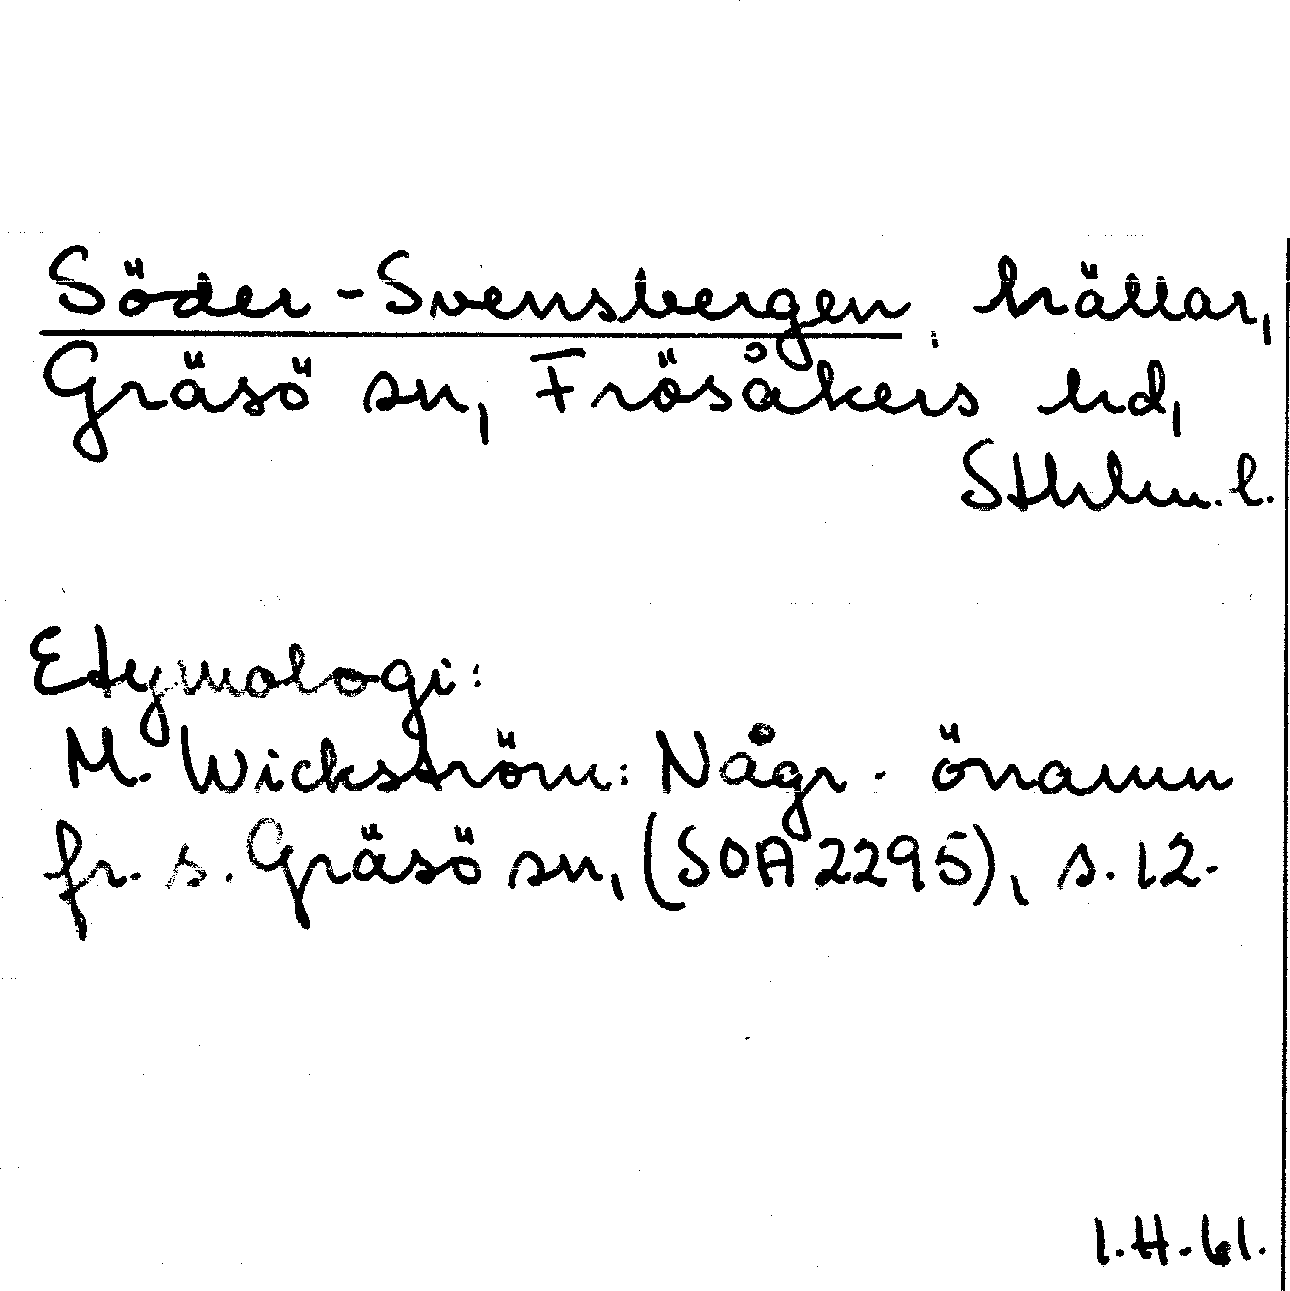 Söder-Svensbergen, hällar,
Gräsö sn, Frösåkers hd,
Sthlm. l.
Etymologi:
M. Wickström: Någr. önamn
fr. s. Gräsö sn, (SOA 2295), s. 12.
I.H. 61.